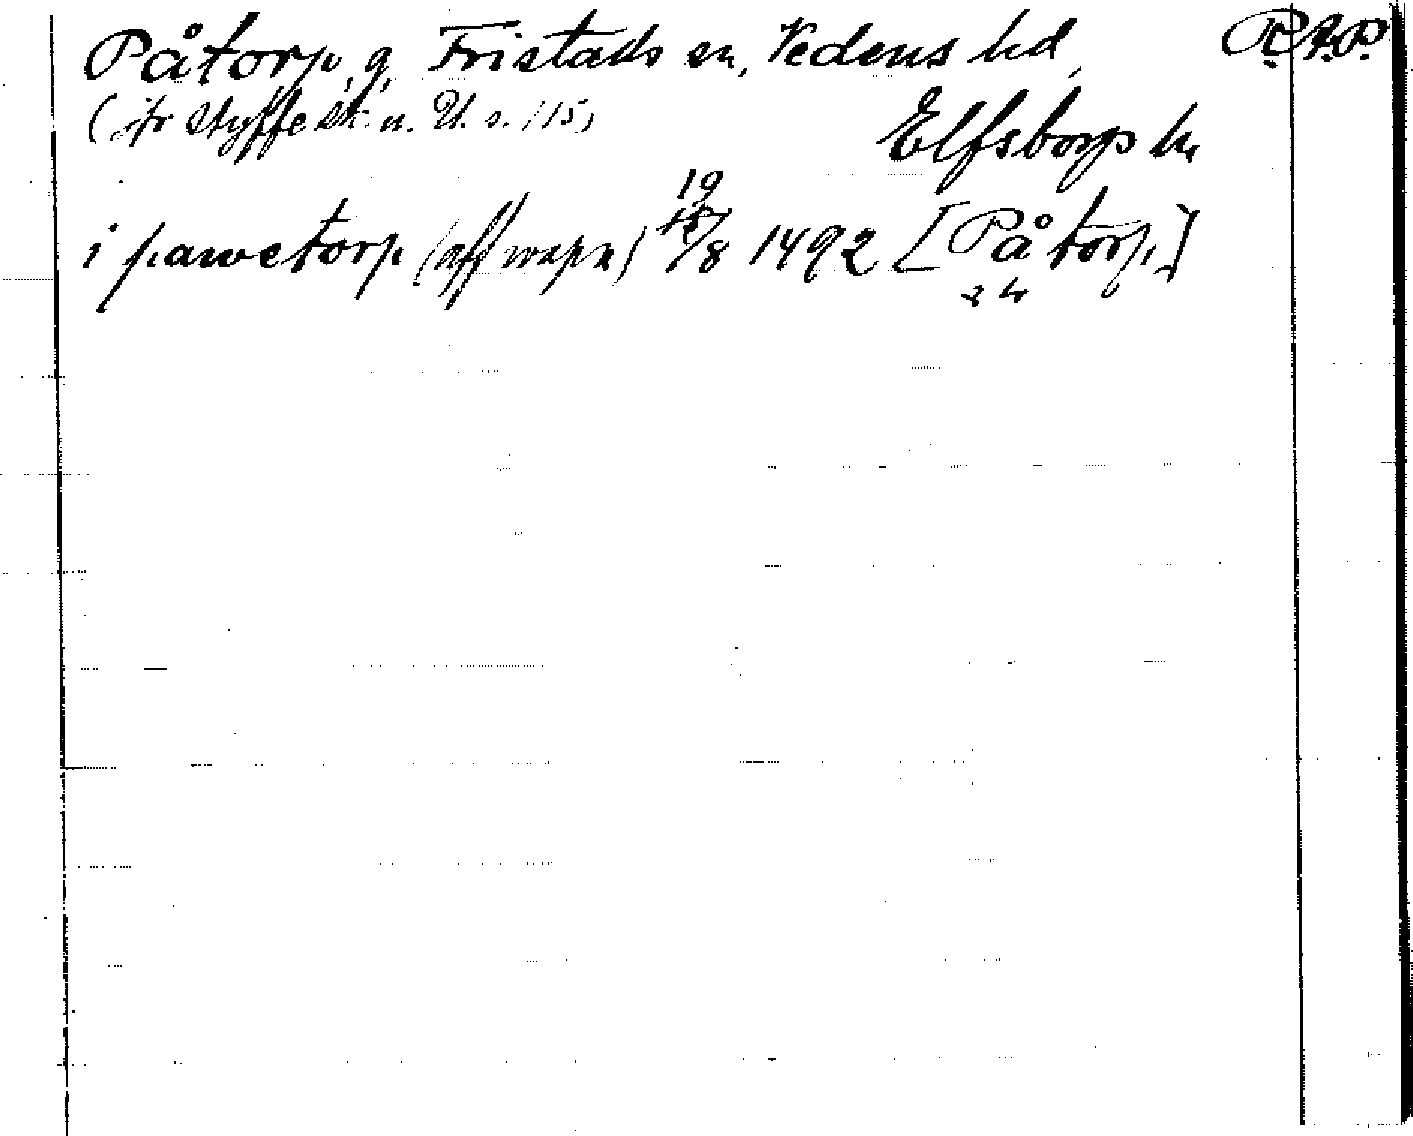 Påtorp, g, Fristads sn, Vedens hd, R.A.P.
(jfr Styffe Sk. u. U. s. 115)
Elfsborgs ln
i pawetorp (aff wapn) 19/8 1492 [Påtorp]
2 h